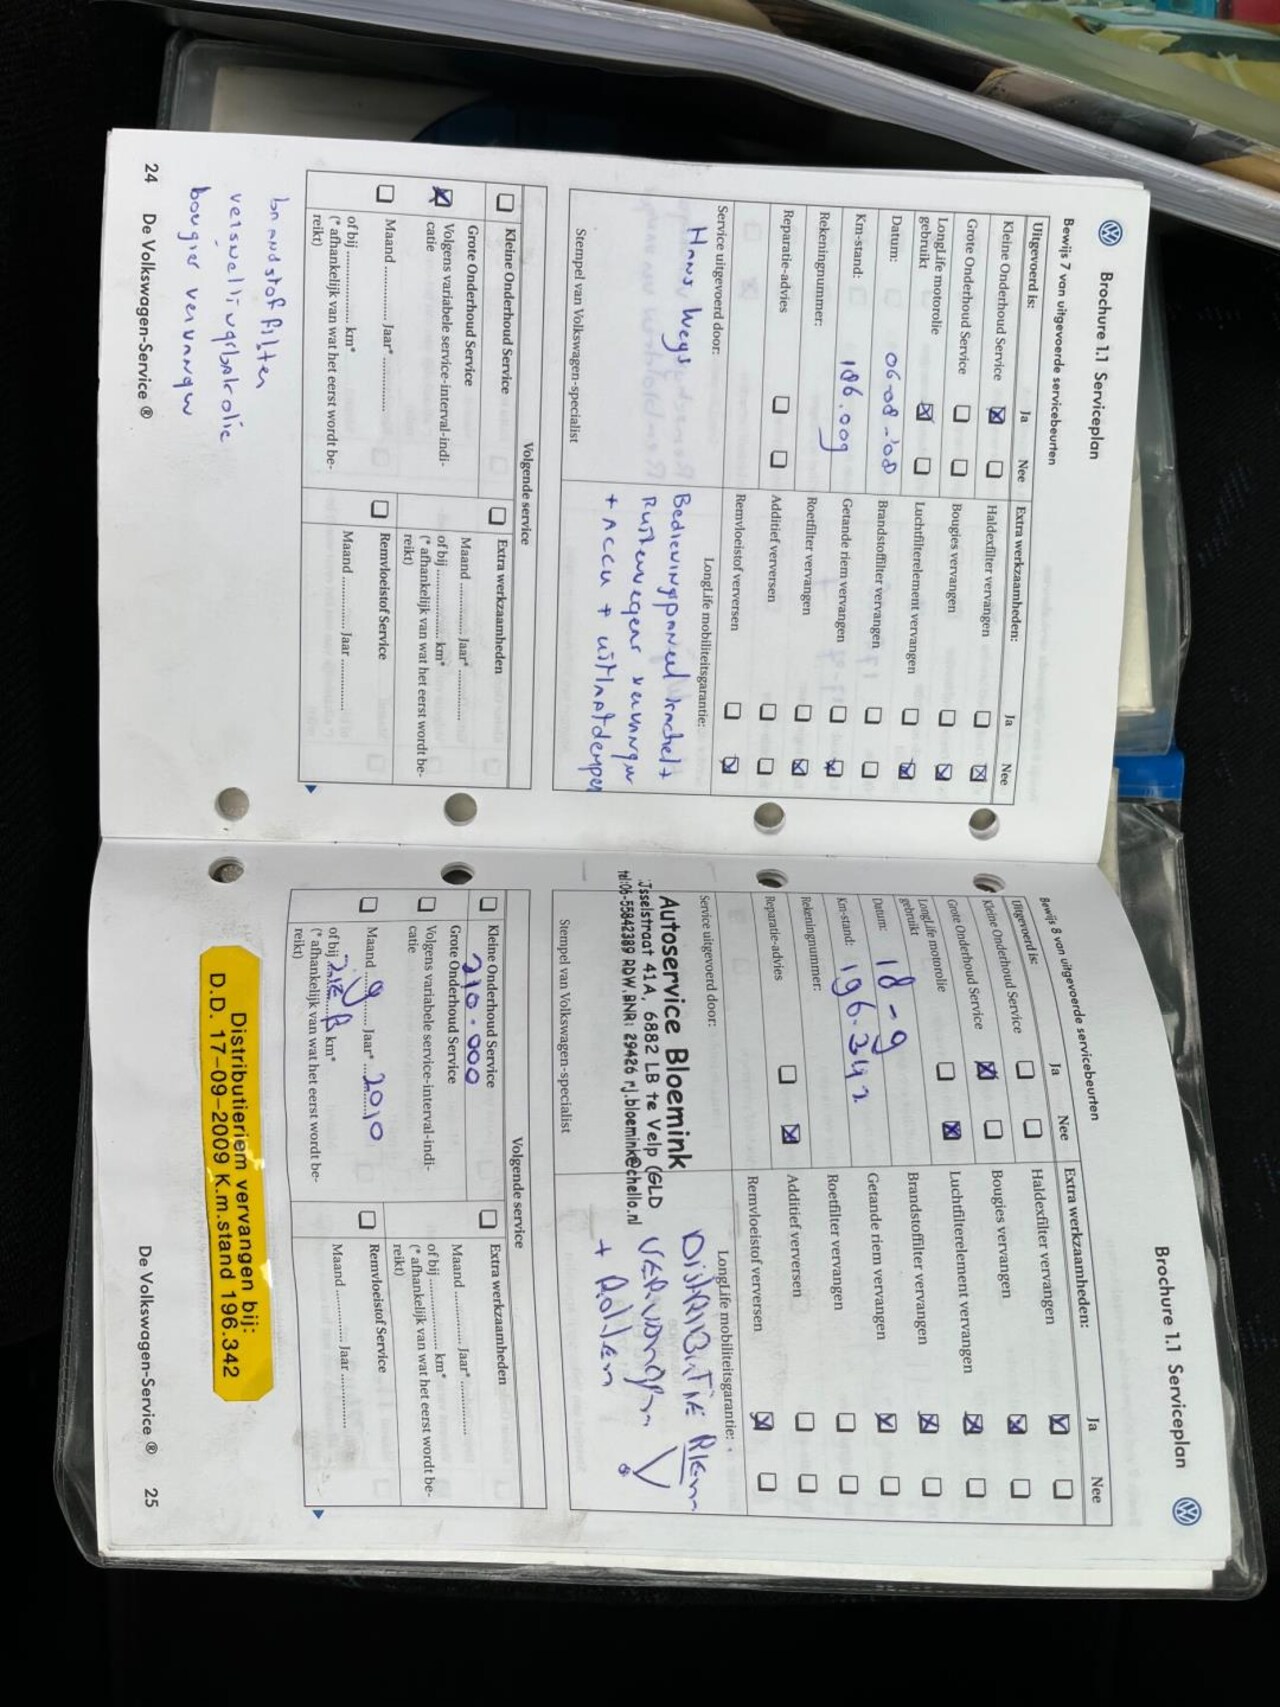 Brochure 1.1 Serviceplan
Bewijs 7 van uitgevoerde servicebeurten
Uitgevoerd is:
Ja
Nee
Kleine Onderhoud Service
Grote Onderhoud Service
LongLife motorolie
gebruikt
Datum:
06-08-'08
Km-stand:
186.009
Rekeningnummer:
Reparatie-advies
Service uitgevoerd door:
Hans Weys
Stempel van Volkswagen-specialist
Extra werkzaamheden:
Ja
Nee
Haldexfilter vervangen
Bougies vervangen
Luchtfilterelement vervangen
Brandstoffilter vervangen
Getande riem vervangen
Roetfilter vervangen
Additief verversen
Remvloeistof verversen
LongLife mobiliteitsgarantie:
Bedieningspaneel kachel +
Ruitenwegers vervangen
+ Accu + uitlaatdemper
Volgende service
Kleine Onderhoud Service
Grote Onderhoud Service
Volgens variabele service-interval-indi-
catie
Maand ............ Jaar* ............
of bij .................. km*
(* afhankelijk van wat het eerst wordt be-
reikt)
Extra werkzaamheden
Maand ............ Jaar* ............
of bij .................. km*
(* afhankelijk van wat het eerst wordt be-
reikt)
Remvloeistof Service
Maand ............ Jaar ............
brandstoffilter
versnellingsbakolie
bougies vervangen
24 De Volkswagen-Service ®
Brochure 1.1 Serviceplan
Bewijs 8 van uitgevoerde servicebeurten
Uitgevoerd is:
Ja
Nee
Kleine Onderhoud Service
Grote Onderhoud Service
LongLife motorolie
gebruikt
Datum:
18-9
Km-stand:
196.342
Rekeningnummer:
Reparatie-advies
Service uitgevoerd door:
Autoservice Bloemink
IJsselstraat 41A, 6882 LB te Velp (GLD
tel:06-55842389 RDW.BNR: 29426 rj.bloemink@chello.nl
Stempel van Volkswagen-specialist
Extra werkzaamheden:
Ja
Nee
Haldexfilter vervangen
Bougies vervangen
Luchtfilterelement vervangen
Brandstoffilter vervangen
Getande riem vervangen
Roetfilter vervangen
Additief verversen
Remvloeistof verversen
LongLife mobiliteitsgarantie:
DistRIButie Riem
VERvangen
+ Rollen
Volgende service
Kleine Onderhoud Service
210.000
Grote Onderhoud Service
Volgens variabele service-interval-indi-
catie
Maand 9 Jaar* 2010
of bij km*
(* afhankelijk van wat het eerst wordt be-
reikt)
Extra werkzaamheden
Maand ............ Jaar* ............
of bij .................. km*
(* afhankelijk van wat het eerst wordt be-
reikt)
Remvloeistof Service
Maand ............ Jaar ............
Distributieriem vervangen bij:
D.D. 17-09-2009 K.m.stand 196.342
De Volkswagen-Service ® 25